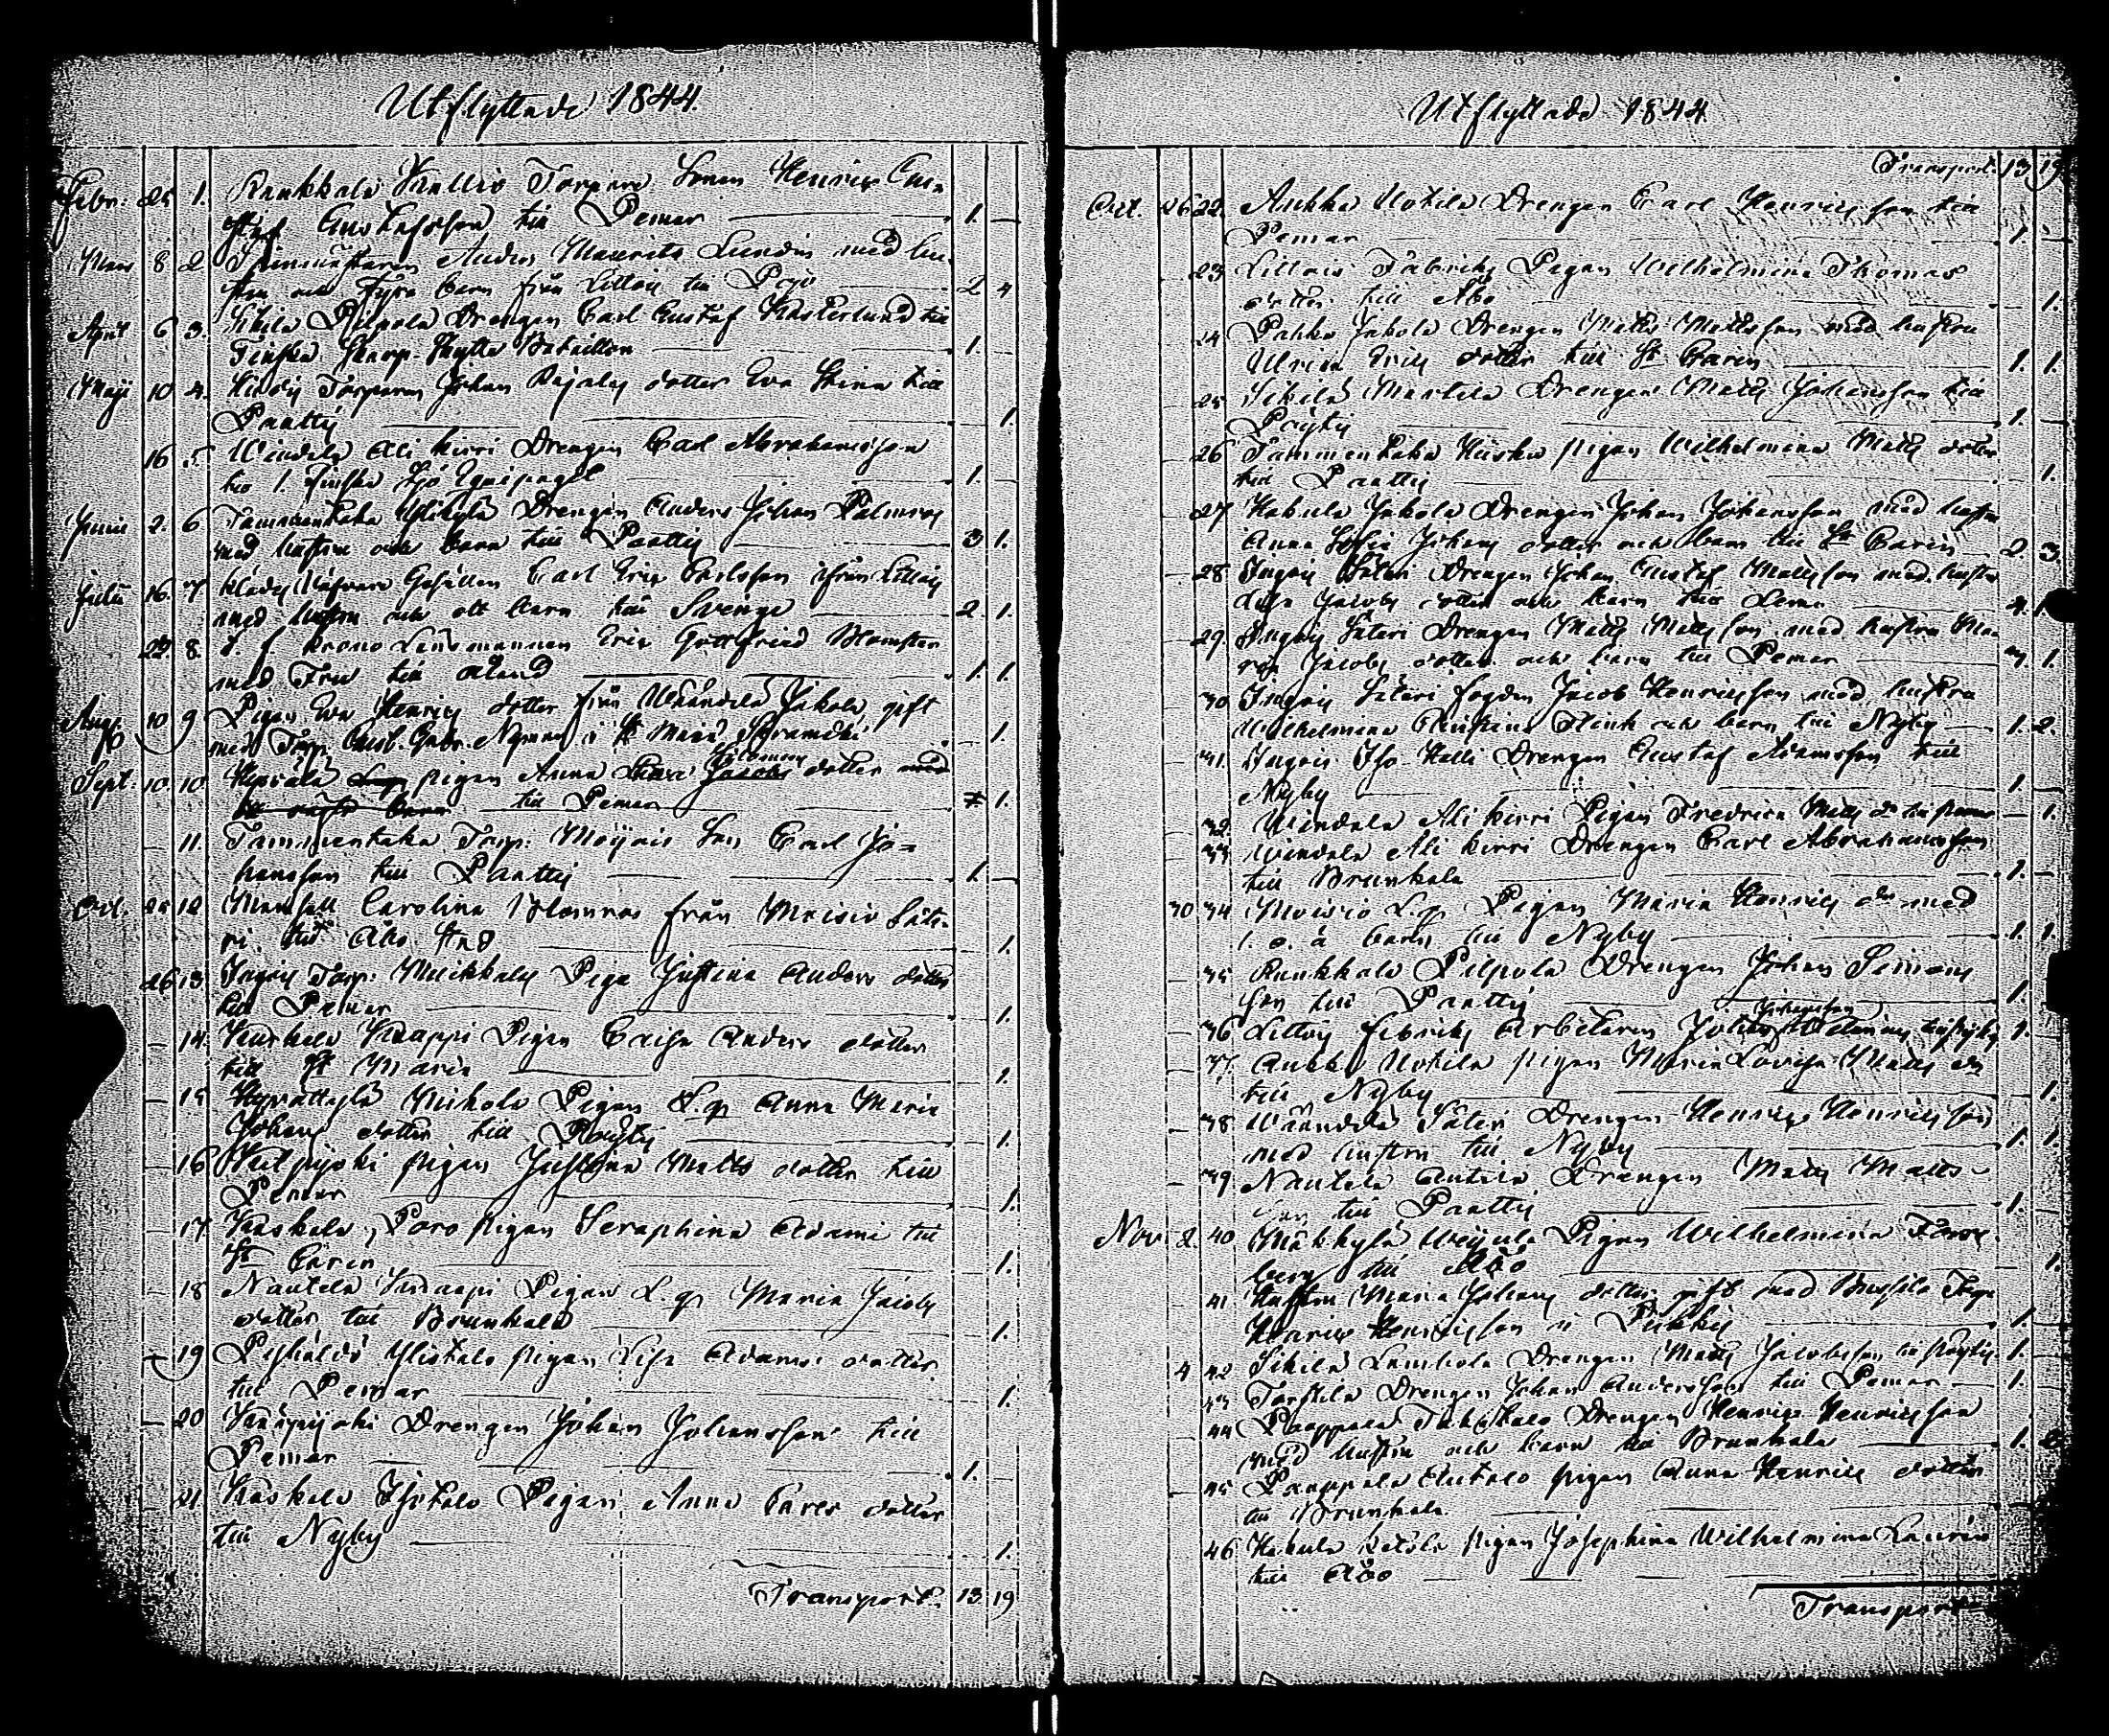 Utflyttade 1844.
Febr. 25 1. Raukkala Kallio Torpare Sonen Henric Gu-
staf Gustafsson till Pemar 1.
Mars 8 2 Anders Mauritz Lundin med hu-
stru och fyra barn från Littois till Pojo 2 4
April 6 3. Sikilä Pilpola Drengen Carl Gustaf till
Finska Skarp-Skytte Bataillon 1.
Maji 10 4. Torparen Johan dotter Eva Stina till
Paattis 1.
16 5. Windala Ali Kirri Drengen Carl Abrahamsson
till 1. Finska Sjö Equipaget 1.
Junii 2. 6 Tammentaka Ylikylä Drengen Anders Johan Palmros
med hustru och barn till Paattis 3 1.
Julii 16. 7 Klädes Wäfvare Gesällen Carl Eric Carlsson ifrån Littois
med hustru och ett barn till Sverige 2. 1.
22. 8. t. f. Krono Länsmannen Eric Gottfried
med Fru till Åland 1. 1.
Aug. 10 9 Pigan Eva Henrics dotter från Wäändelä Jakola, gift
med Torp. Nyman i St Marie 1.
Sept. 10. 10 pigan Anna dotter
till Pemar 1.
11. Tammentaka Torp. Son Carl Jo-
hansson till Paattis 1
Oct. 12 Mamsell Carolina Blomroos från Moisio Säte-
ri till Åbo Stad 1.
26 13. Ingois Torp. Piga Justina Anders dotter
till Pemar 1.
14. Kaskala Knaappi Pigan Caisa Anders dotter
till St Marie 1.
15 Mikola Pigan L.q. Anna Maria
Johans dotter till Pöytis 1.
16 pigan Justina Matts dotter till
Pemar 1.
17 Kaskala Poro pigan Seraphina Adami till
St Carin 1.
18 Nautela Knaapi Pigan L.q. Maria Jacobs
dotter till Brunkala 1.
19 Ylistalo pigan Lisa Adams dotter
till Pemar 1.
20 Drengen Johan Johansson till
Pemar 1.
21 Kaskala Isotalo Pigan Anna dotter
till Nyby 1.
Transport. 13. 19
Utflyttade 1844
Transport. 13 19
Oct. 26 22. Aukko Uotila Drengen Carl Henricsson till
Pemar 1.
23 Littois Fabriks Pigan Wilhelmina Thomas
dotter till Åbo 1.
24 Pahka Jakola Drengen Matts Mattsson med hustru
Ulrica Erics dotter till St Carin 1. 1.
25 Sikilä Martila Drengen Matts Johansson till
Pöytis 1.
26 Tammentaka pigan Wilhelmina Matts dotter
till Paattis 1.
27 Hakula Jakola Drengen Johan Johansson med hustru
Anna Sofia Johans dotter och barn till St Carin 2 3.
28 Ingois Säteri Drengen Johan Gustaf Mattsson med hustru
Lisa Jacobs dotter och barn till Lemo
29. Ingois Säteri Drengen Matts Mattsson med hustru Ma-
ria Jacobs dotter och barn till Pemar 1.
30 Ingois Säteri fogden Jacob Henricsson med hustru
Wilhelmina och barn till Nyby 1. 2.
31. Ingois Iso-Kalli Drengen Gustaf Adamsson till
Nyby 1.
32. Windala Ali Kirri Pigan Fredrica Matts dr till Pemar 1.
33 Windala Ali Kirri Drengen Carl Abrahamsson
till Brunkala 1.
30 34 Moisio L.q. Pigan Maria Henrics dr med
1. o. ä barn till Nyby 1. 1.
35 Raukkala Pilpola Drengen Johan Simons
son till Paattis 1.
36 Littois fabriks Arbetaren 1.
37. Aukko Uotila pigan Maria Lovisa Matts dr
till Nyby 1.
38 Wäändelä Säteri Drengen Henric Henricsson
med hustru till Nyby 1. 1.
39 Nautela Anttila Drengen Matts Matts-
son till Paattis 1.
Nov. 2. 40 Mäkkylä Pigan Wilhelmina Fors-
berg till Åbo 1.
41 Hustru Maria Johans dotter gift med
Henric Henricsson i Pikkis 1.
4 42 Sikilä Lambola Drengen Matts Jacobsson till Pöytis 1.
43 Torskila Drengen Johan Andersson till Pemar 1.
44 Paappala Drengen Henric Henricsson
med hustru och barn till Brunkala 1.
45 Paappala pigan Anna Henrics dotter
till Brunkala
46 Hakula Ketola pigan Josephina Wilhelmina
till Åbo
Transport